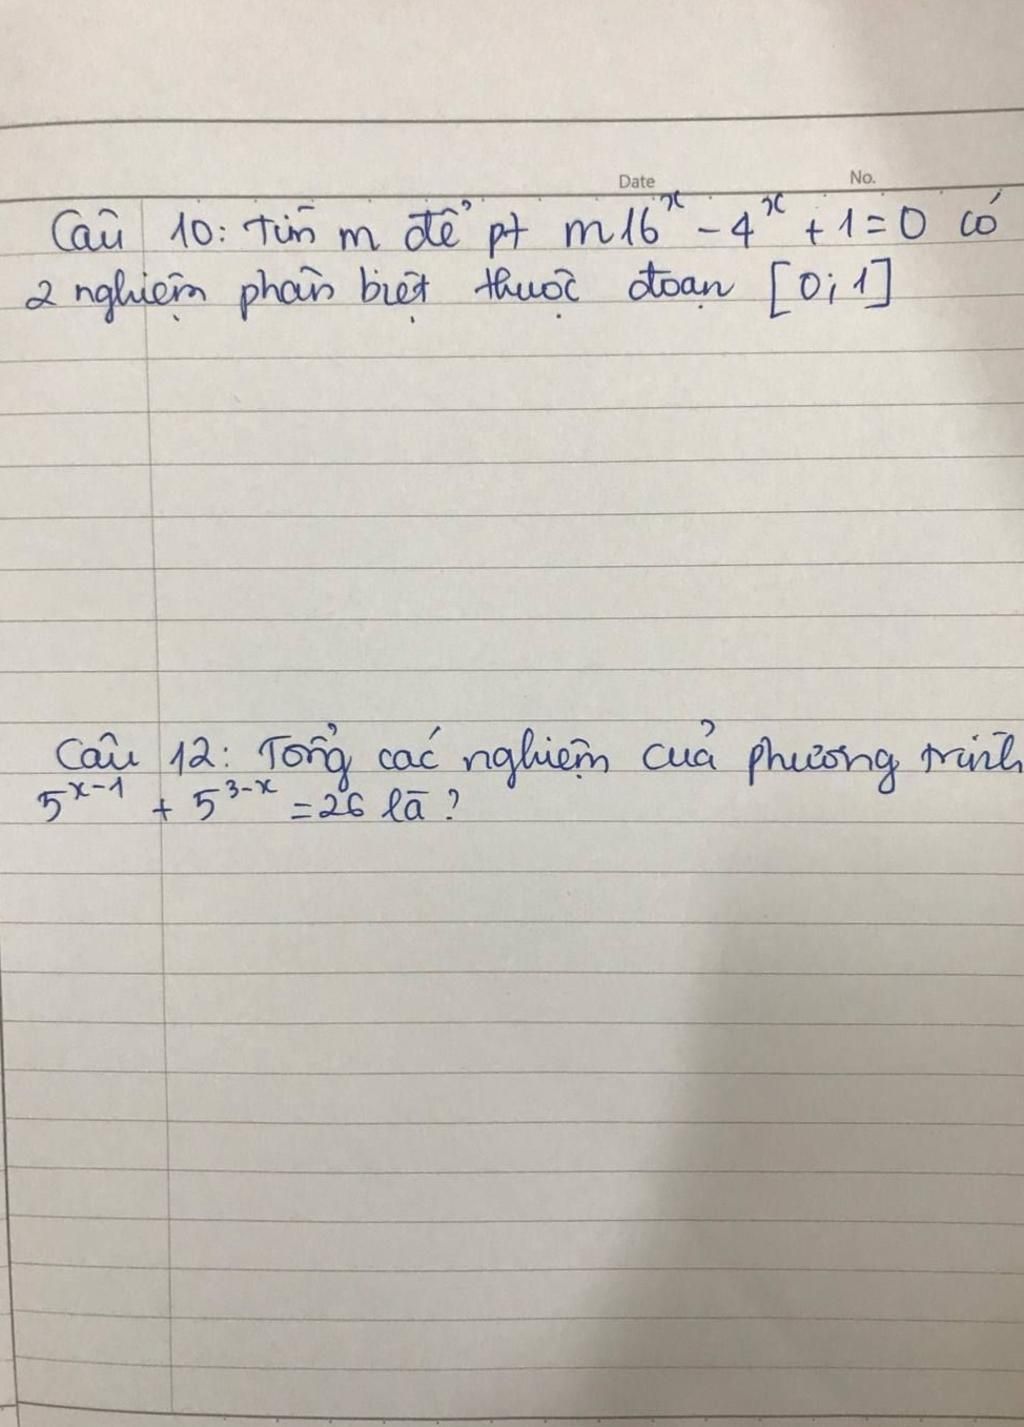 Date No.
Câu 10: Tìm m để pt m16^x - 4^x + 1 = 0 có
2 nghiệm phân biệt thuộc đoạn [0; 1]
Câu 12: Tổng các nghiệm của phương trình
5^{x-1} + 5^{3-x} = 26 là ?